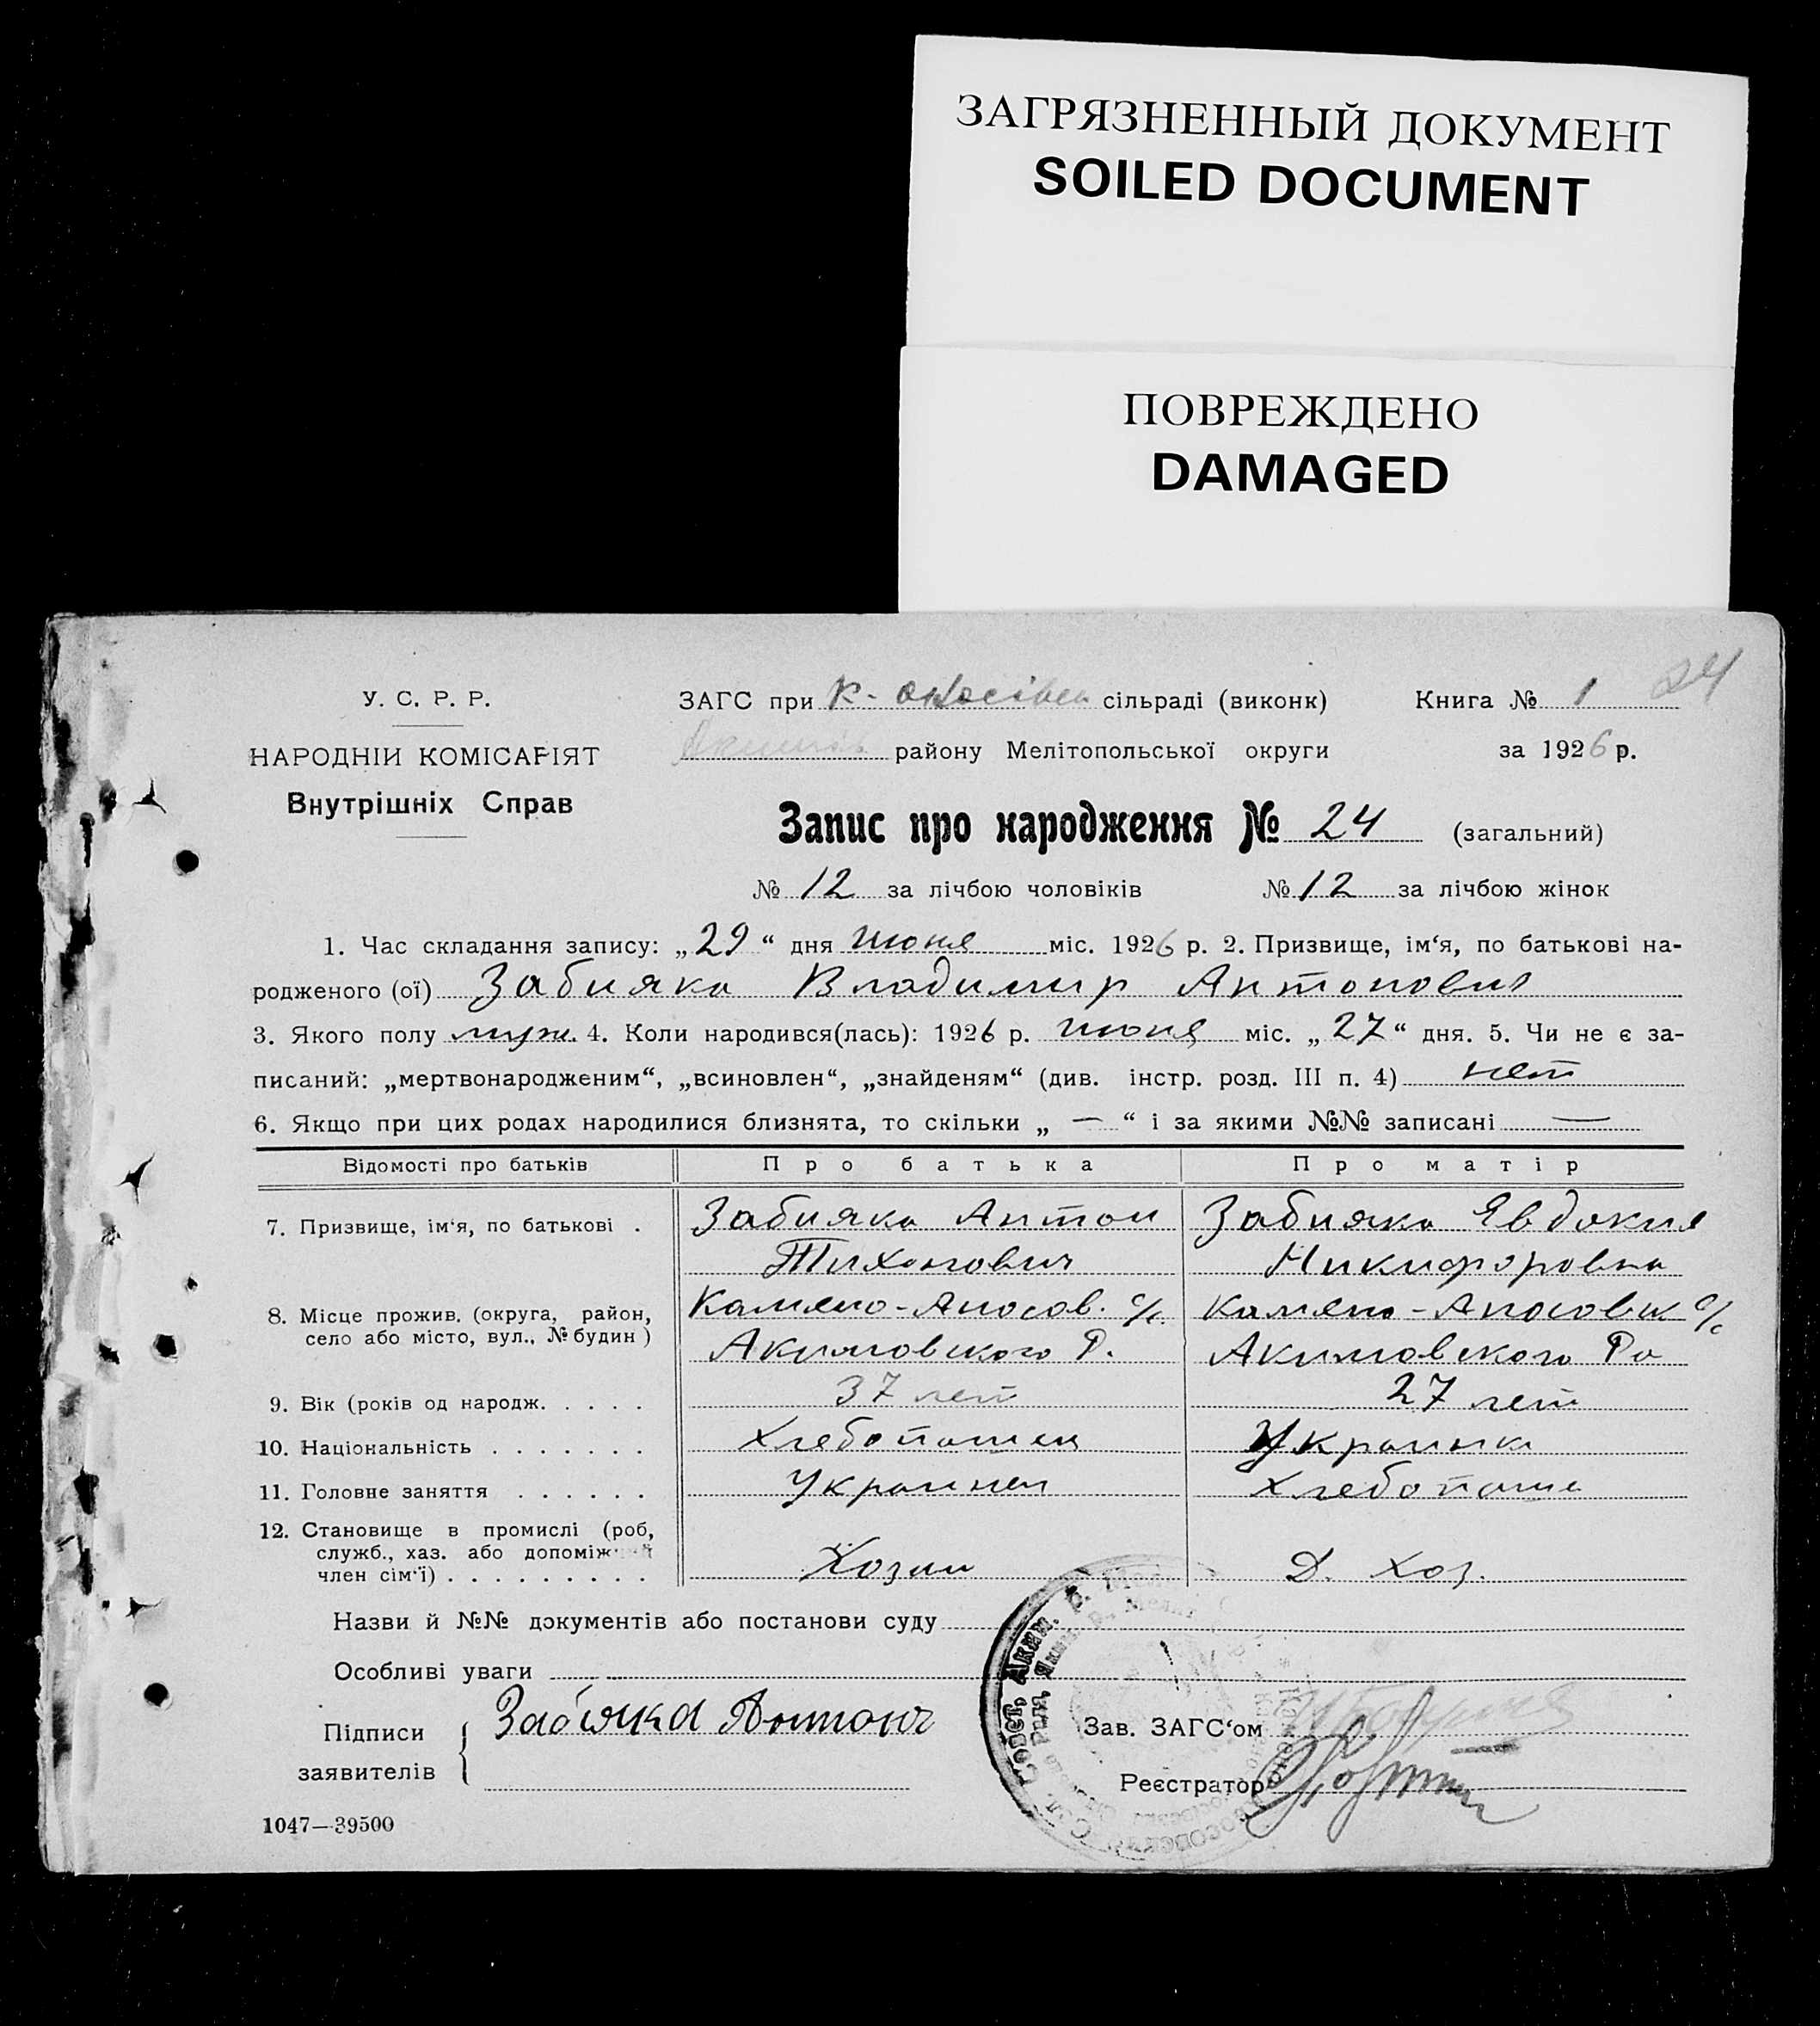 ЗАГРЯЗНЕННЫЙ ДОКУМЕНТ
SOILED DOCUMENT
ПОВРЕЖДЕНО
DAMAGED
24
У. С. Р. Р.
ЗАГС при К- сільраді (виконк) Книга № 1
НАРОДНІЙ КОМІСАРІЯТ
району Мелітопольської округи за 1926 р.
Внутрішніх Справ
Запис про народження № 24 (загальний)
№ 12 за лічбою чоловіків № 12 за лічбою жінок
1. Час складання запису: „29“ дня июня міс. 1926 р. 2. Призвище, ім‘я, по батькові на-
родженого (ої) Забияка Владимир Антонович
3. Якого полу муж. 4. Коли народився(лась): 1926 р. июня міс. „27“ дня. 5. Чи не є за-
писаний: „мертвонародженим“, „всиновлен“, „знайденям“ (див. інстр. розд. III п. 4) нет
6. Якщо при цих родах народилися близнята, то скільки „ — “ і за якими №№ записані —
Відомості про батьків Про батька Про матір
7. Призвище, ім‘я, по батькові . Забияка Антон Забияка Евдокия
Тихонович Никифоровна
8. Місце прожив. (округа, район, Камяно-Аносов. с/с. Камяно-Аносовск с/с
село або місто, вул., № будин )
Акимовского Р. Акимовского Ра
9. Вік (років од народж. . . . . 37 лет 27 лет
10. Національність . . . . . . . Хлебопашец Украинка
11. Головне заняття . . . . . . Украинец Хлебопаше
12. Становище в промислі (роб,
служб., хаз. або допоміжний
член сім‘ї) . . . . . . . . . Хозяин Д. Хоз.
Назви й №№ документів або постанови суду
Особливі уваги
Підписи Забіяка Антонъ
заявителів
Зав. ЗАГС‘ом
Реєстратор
Совет, Аким. р.
1047—39500